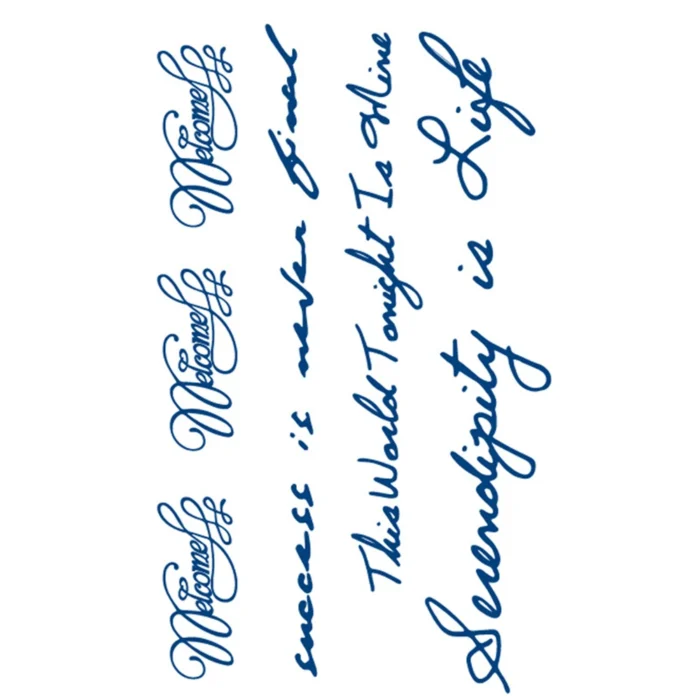 Welcome Welcome Welcome
success is never final
This World Tonight Is Mine
Serendipity is Life